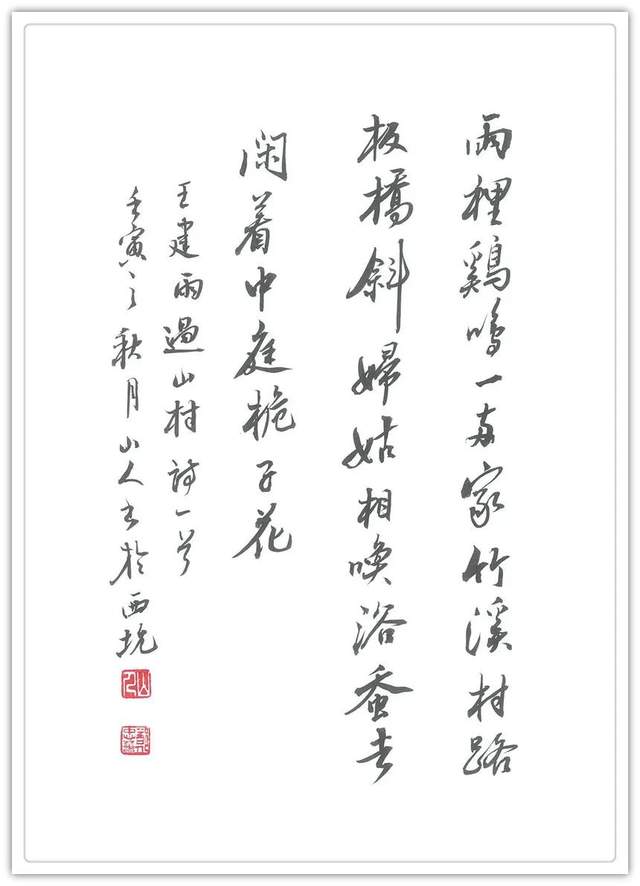 雨裡鷄鳴一两家竹溪村路
板橋斜婦姑相喚浴蚕去
闲着中庭栀子花
王建雨過山村詩一首
壬寅之秋月山人书於西坑
山人